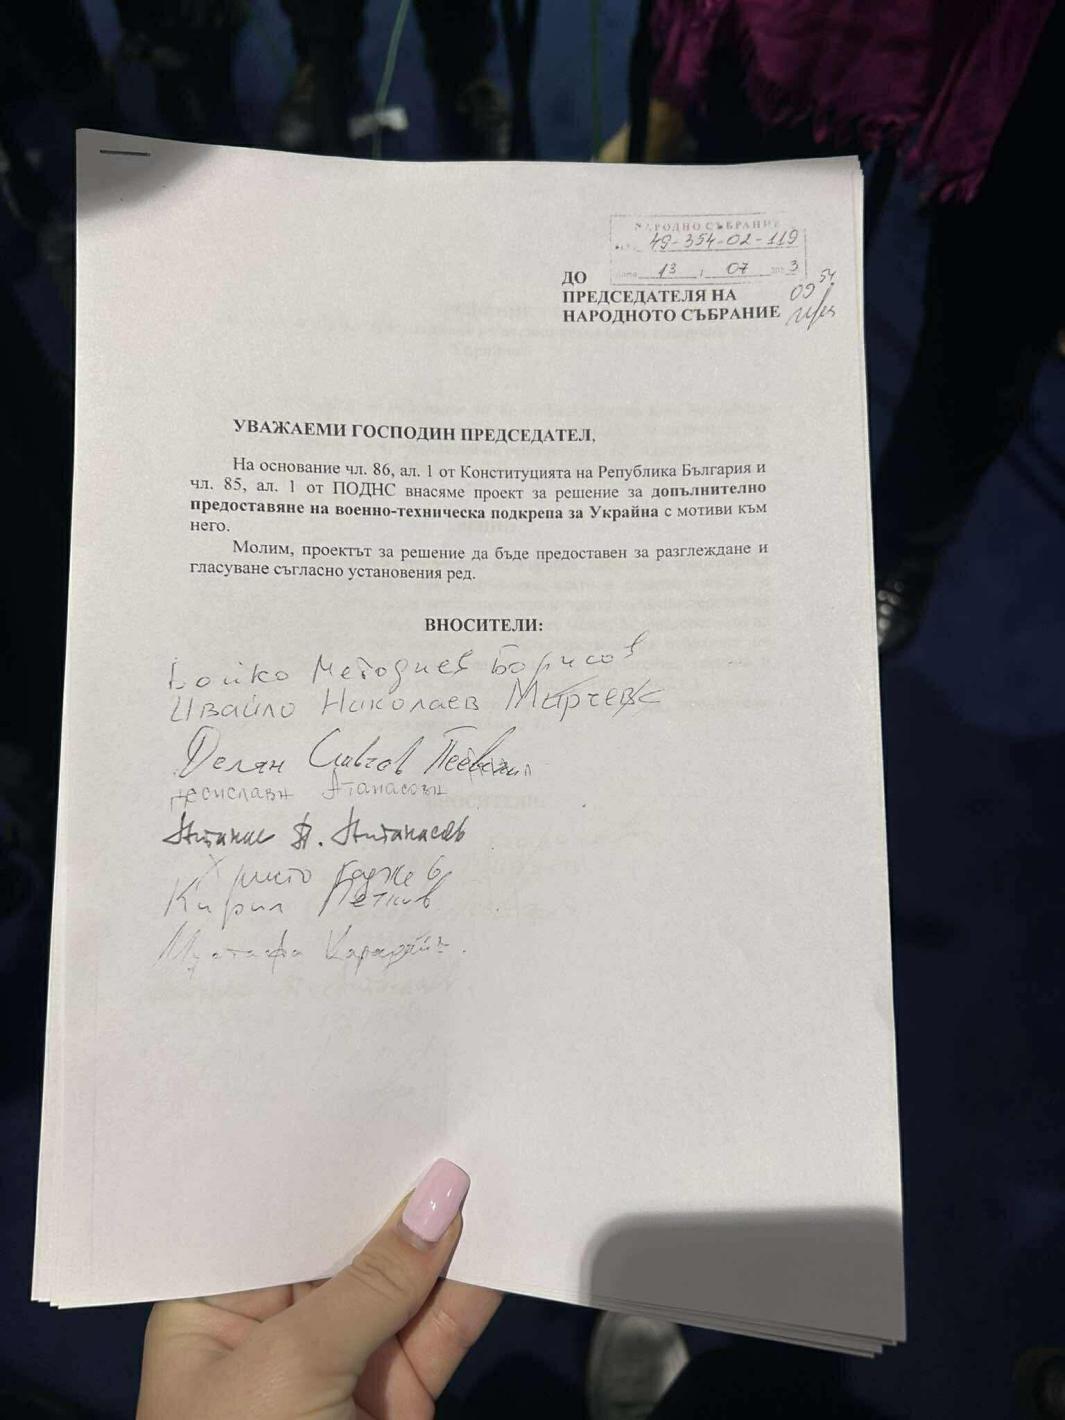 НАРОДНО СЪБРАНИЕ
49-354-02-119
дата 13 / 07 2023
09 54
ДО
ПРЕДСЕДАТЕЛЯ НА
НАРОДНОТО СЪБРАНИЕ
УВАЖАЕМИ ГОСПОДИН ПРЕДСЕДАТЕЛ,
На основание чл. 86, ал. 1 от Конституцията на Република България и
чл. 85, ал. 1 от ПОДНС внасяме проект за решение за допълнително
предоставяне на военно-техническа подкрепа за Украйна с мотиви към
него.
Молим, проектът за решение да бъде предоставен за разглеждане и
гласуване съгласно установения ред.
ВНОСИТЕЛИ:
Бойко Методиев Борисов
Ивайло Николаев Мирчев
Делян Славчов Пеевски
Десислава Атанасова
Атанас П. Атанасов
Христо Гаджев
Кирил Петков
Мустафа Карадайъ